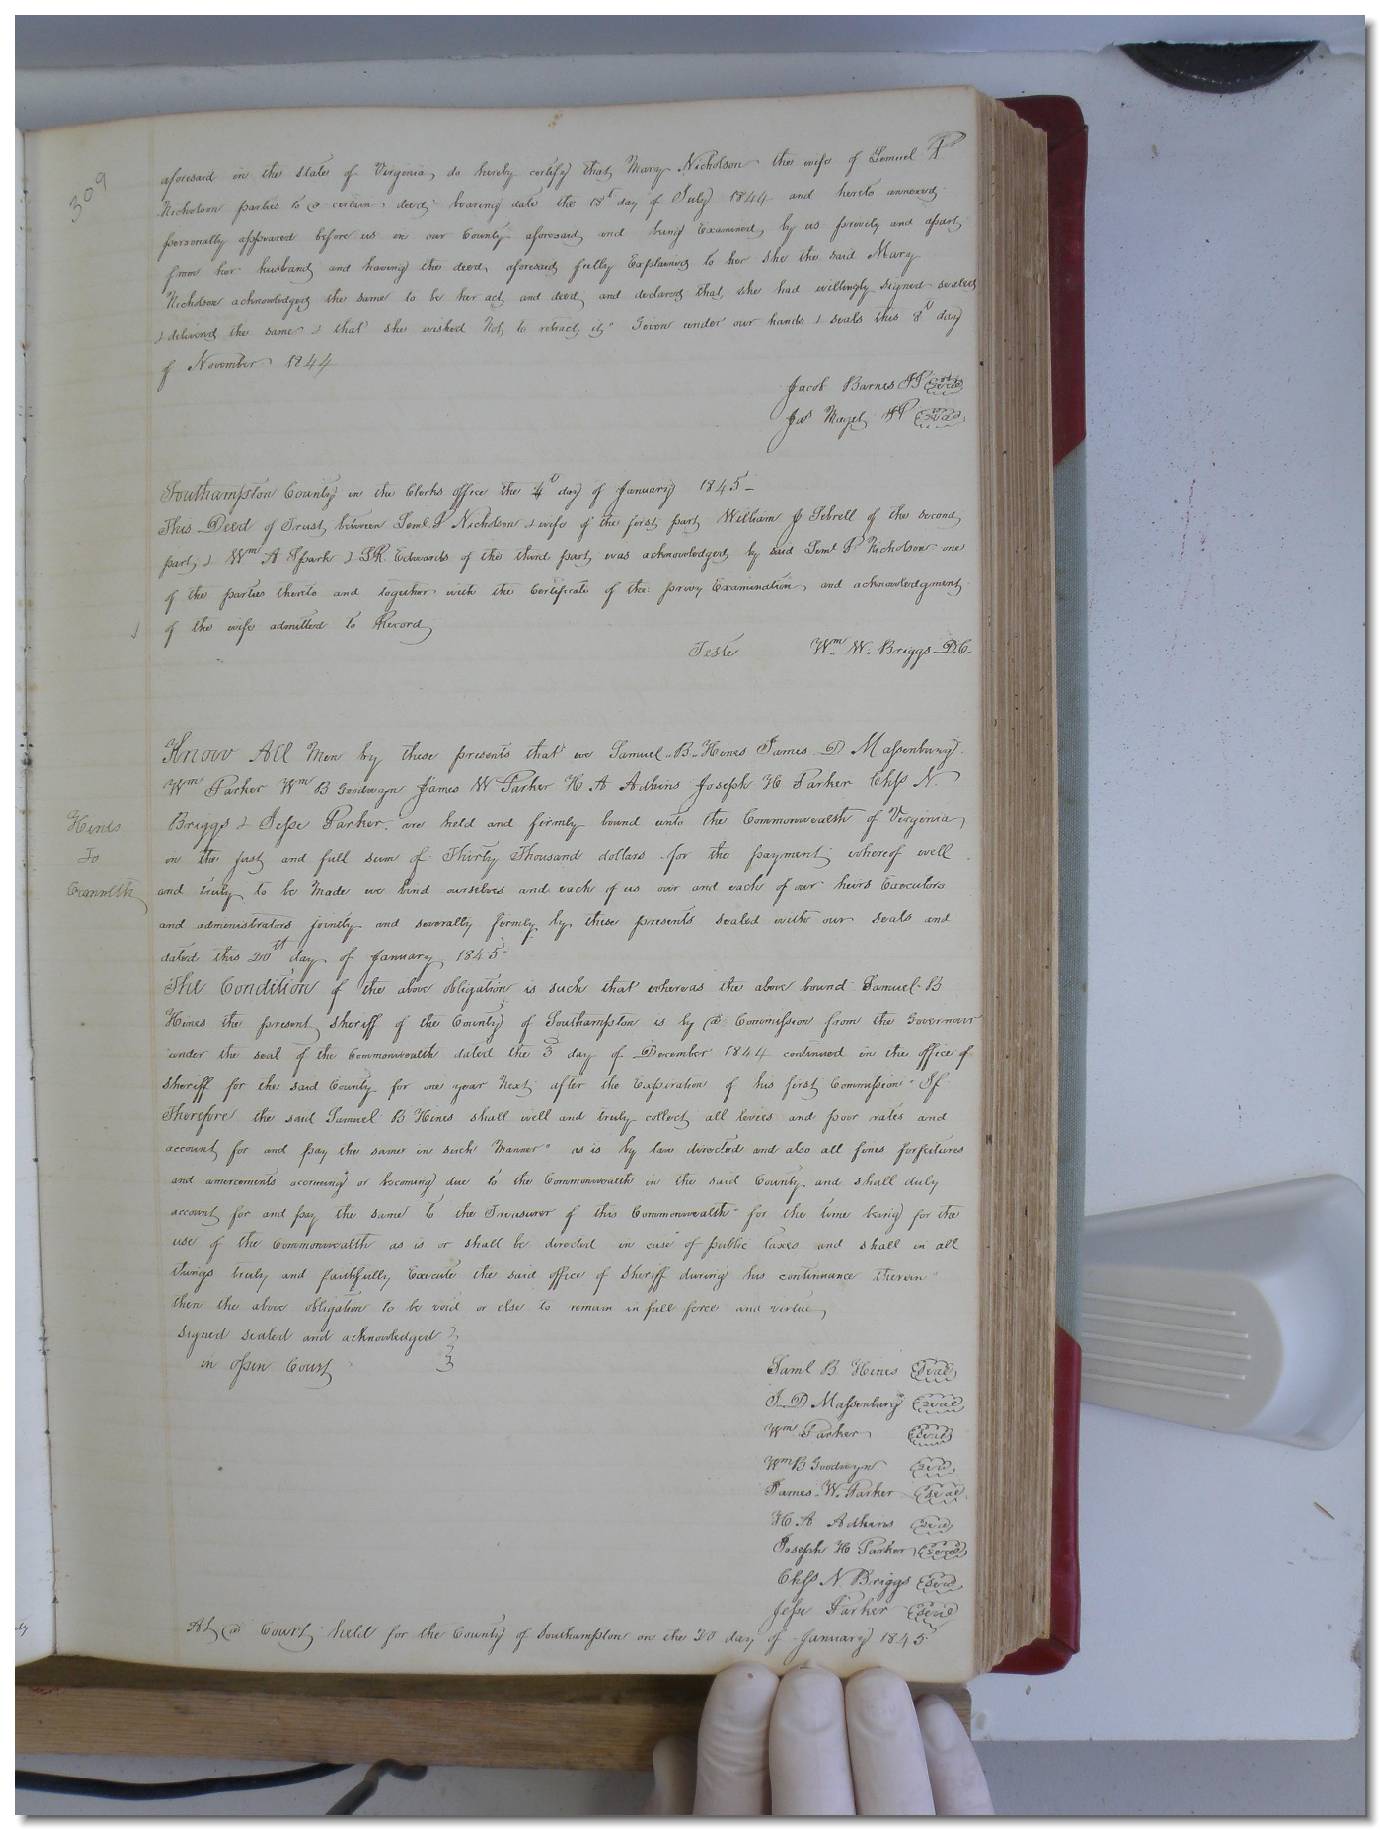 309
aforesaid in the state of Virginia, do hereby certify that Mary Nicholson the wife of Lemuel P
Nicholson parties to a certain deed bearing date the 18th day of July 1844 and hereto annexed
personally appeared before us in our County aforesaid and being Examined by us privily and apart
from her husband and having the deed aforesaid fully Explained to her She the said Mary
Nicholson acknowledged the same to be her act and deed and declared that she had willingly signed sealed
& delivered the same & that she wished Not to retract it Given under our hands & seals this 8th day
of November 1844
Jacob Barnes JP Seal
Jas Maget JP Seal
Southampton County in the Clerks office the 4th day of January 1845
This Deed of Trust between Leml P Nicholson & wife of the first part William J Sebrell of the second
part, & Wm A Spark & SR Edwards of the third part was acknowledged by said Leml P Nicholson one
of the parties thereto and together with the Certificate of the privy Examination and acknowledgment
of the wife admitted to Record
Teste Wm W. Briggs D.C.
Know All Men by these presents that we Samuel B Hines James D Massenburg
Wm Parker Wm B Goodwyn James W Parker H A Adkins Joseph H Parker Chls N
Hines
To
Comwlth
Briggs & Jesse Parker are held and firmly bound unto the Commonwealth of Virginia
in the just and full sum of Thirty Thousand dollars for the payment whereof well
and truly to be Made we bind ourselves and each of us our and each of our heirs Executors
and administrators jointly and severally firmly by these presents sealed with our seals and
dated this 20th day of January 1845
The Condition of the above obligation is such that whereas the above bound Samuel B
Hines the present sheriff of the County of Southampton is by a Commission from the Governour
under the seal of the Commonwealth dated the 3 day of December 1844 continued in the office of
sheriff for the said County for one year Next after the Expiration of his first Commission If
Therefore the said Samuel B Hines shall well and truly collect all levies and poor rates and
account for and pay the same in such Manner as is by law directed and also all fines forfeitures
and amercements accrueing or becoming due to the Commonwealth in the said County and shall duly
account for and pay the same to the Treasurer of this Commonwealth for the time being for the
use of the Commonwealth as is or shall be directed in case of public taxes and shall in all
things truly and faithfully Execute the said office of Sheriff during his continuance therein
then the above obligation to be void or else to remain in full force and virtue
signed sealed and acknowledged
in open Court
Saml B Hines Seal
J D Massenburg Seal
Wm Parker Seal
Wm B Goodwyn Seal
James W. Parker Seal
H A Adkins Seal
Joseph H Parker Seal
Chls N Briggs Seal
Jesse Parker Seal
At a Court held for the County of Southampton on the 20 day of January 1845